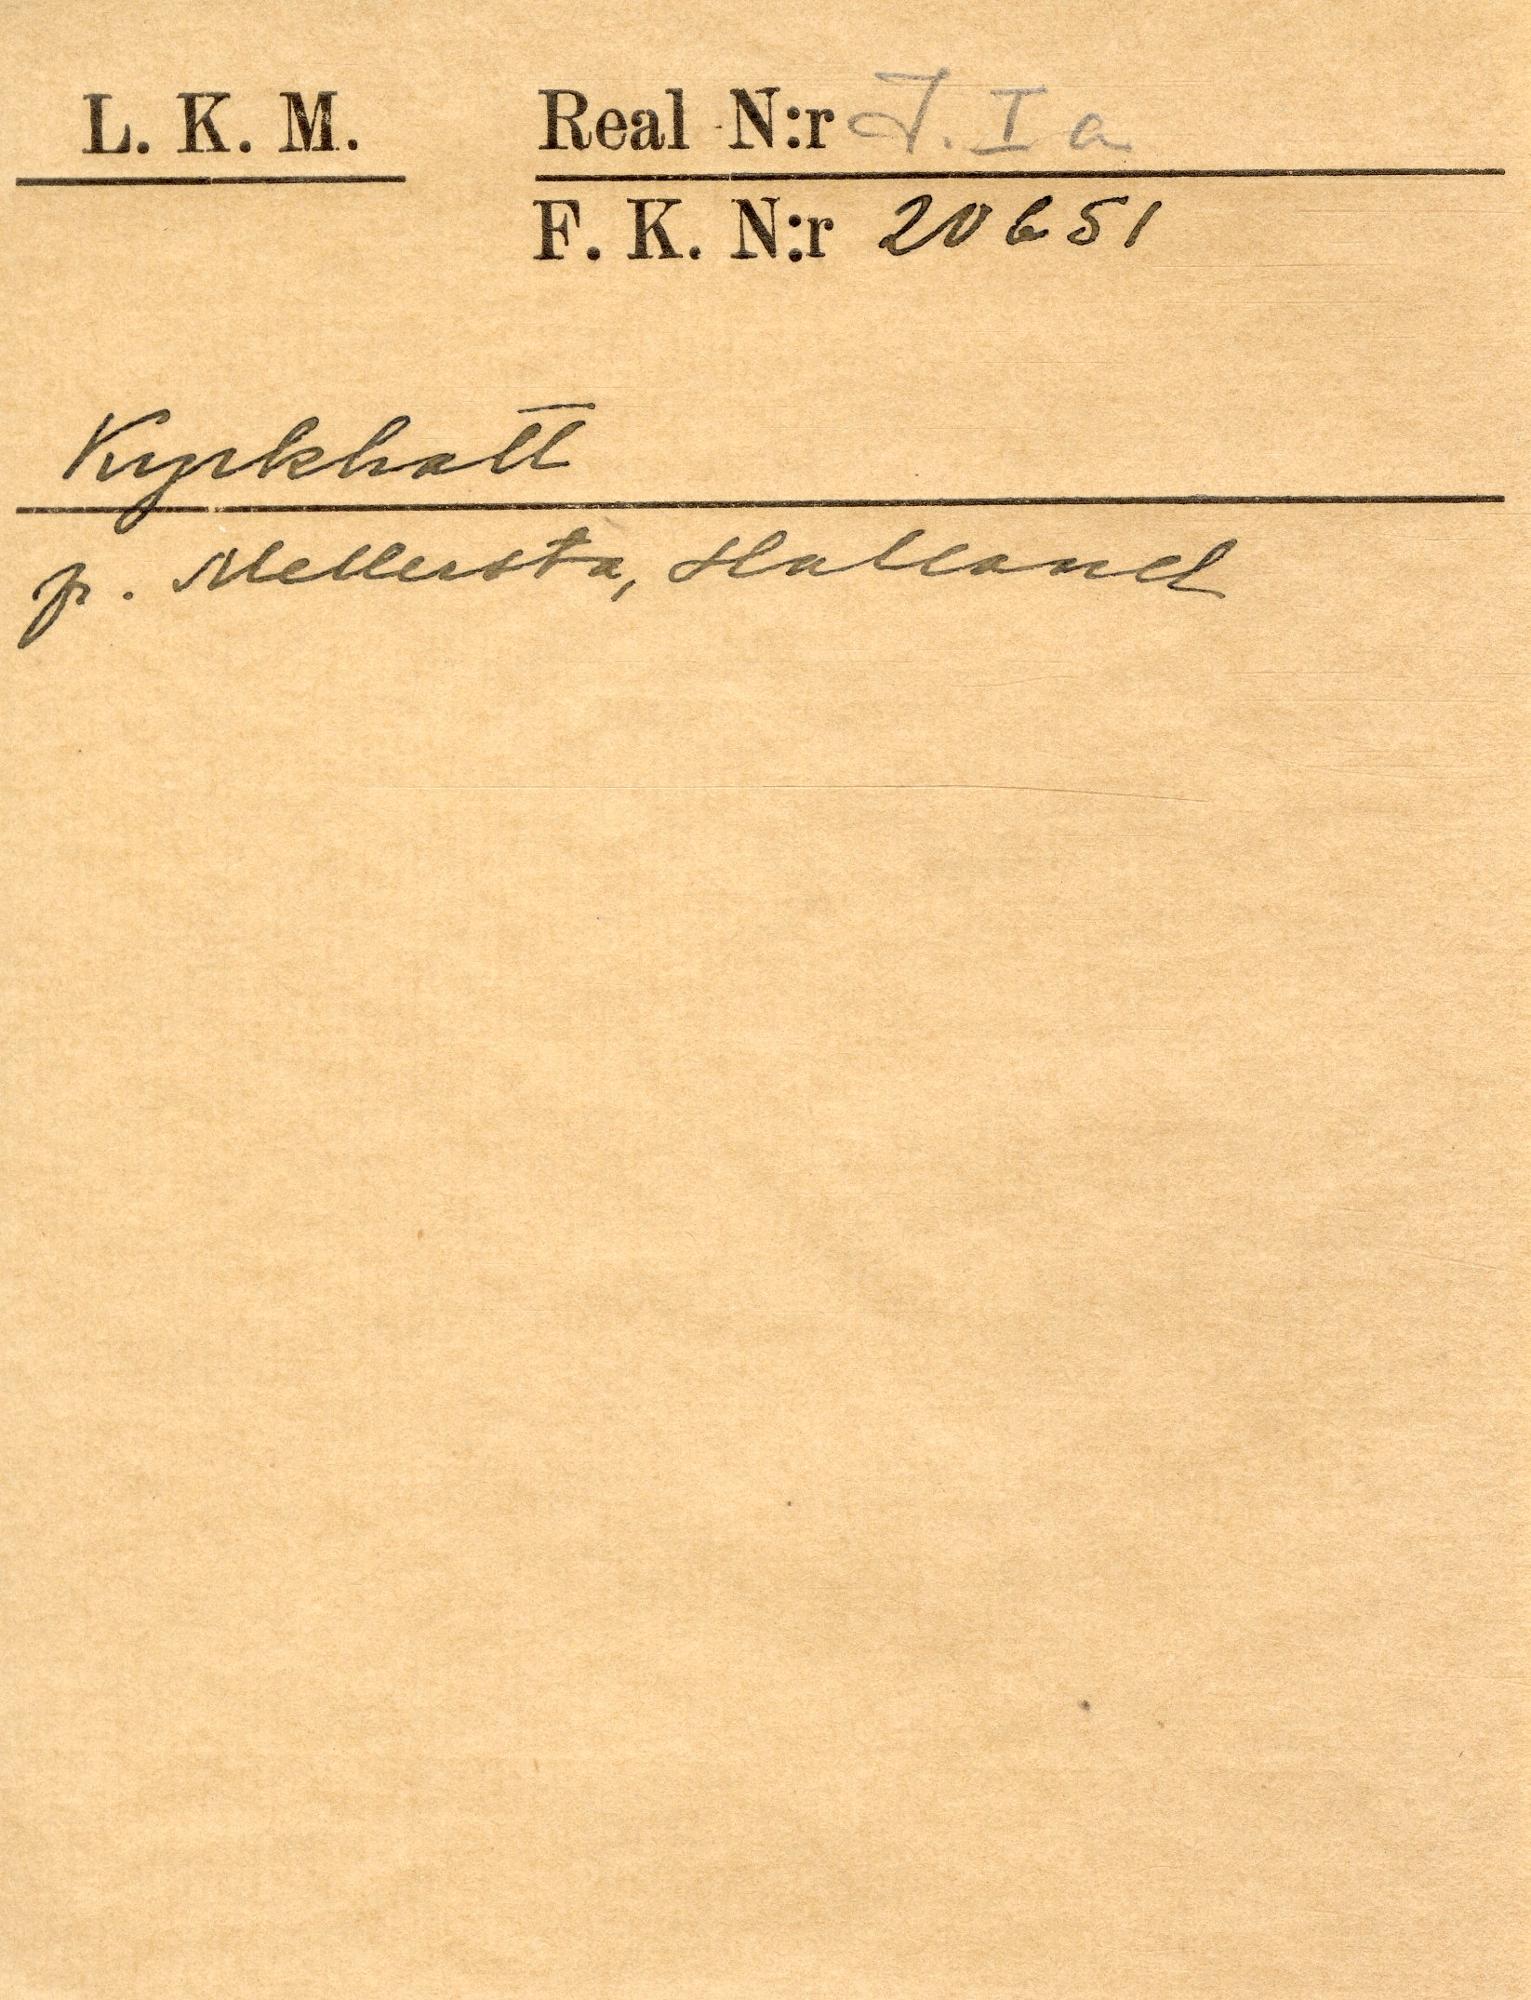 L. K. M.
Real N:r J. I a
F. K. N:r 20651
Kyrkhatt
fr. Mellersta, Halland